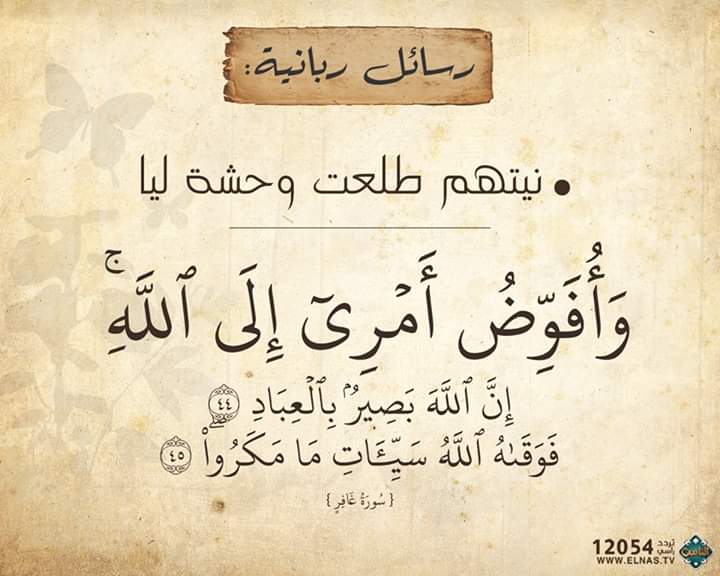 رسائل ربانية:
• نيتهم طلعت وحشة ليا
وَأُفَوِّضُ أَمْرِىٓ إِلَى ٱللَّهِ ۚ
إِنَّ ٱللَّهَ بَصِيرٌۢ بِٱلْعِبَادِ ٤٤
فَوَقَىٰهُ ٱللَّهُ سَيِّـَٔاتِ مَا مَكَرُوا۟ ۖ ٤٥
{ سُورَةُ غَافِرٍ }
تردد رأسي 12054
WWW.ELNAS.TV
الناس